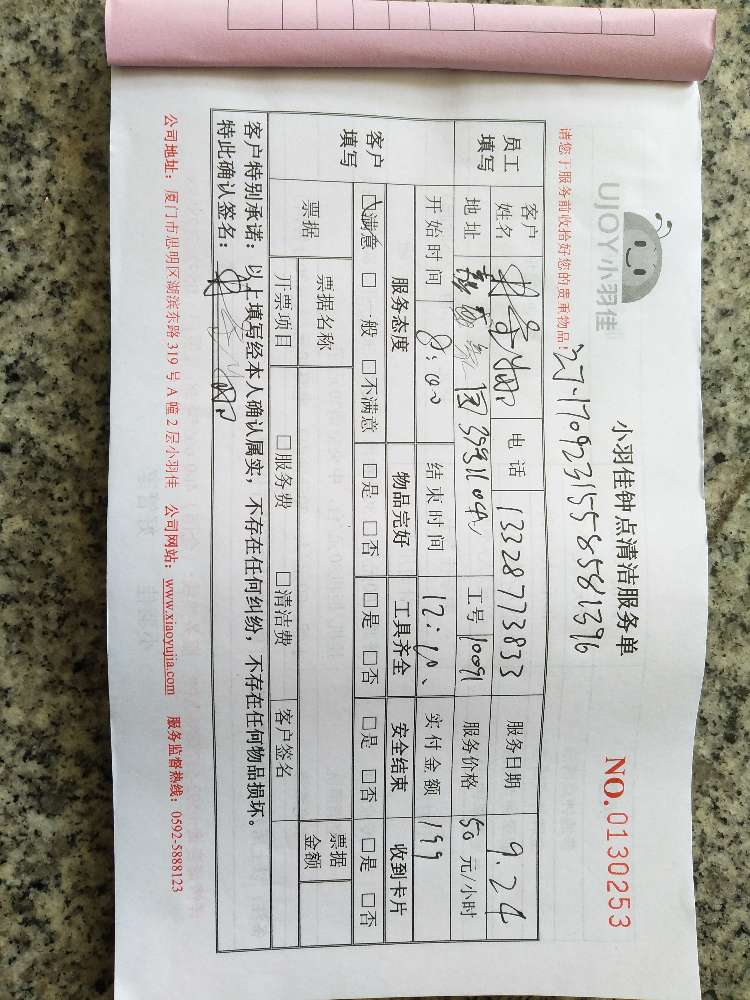 UJOY小羽佳
小羽佳钟点清洁服务单
NO.0130253
请您于服务前收拾好您的贵重物品!
员工填写 客户姓名 电话 13328773833 服务日期 9.24
地址 工号 10091 服务价格 50 元/小时
开始时间 8:00 结束时间 12:00 实付金额 199
客户填写 服务态度 物品完好 工具齐全 安全结束 收到卡片
☑满意 □ 一般 □不满意 □是 □否 □是 □否 □是 □否 □是 □否
票据 票据名称 票据金额
开票项目 □服务费 □清洁费 客户签名
客户特别承诺：以上填写经本人确认属实，不存在任何纠纷，不存在任何物品损坏。
特此确认签名：
公司地址：厦门市思明区湖滨东路 319 号 A 幢 2 层小羽佳 公司网站：www.xiaoyujia.com 服务监督热线：0592-5888123